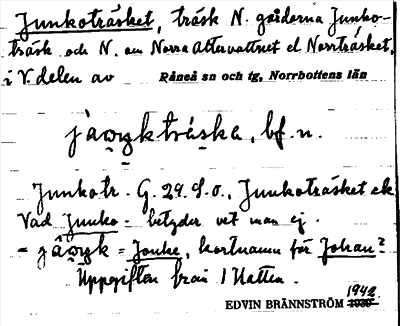 Junkoträsket, träsk N. gårderna Junko-
träsk och N. om Norra Altervattnet el Norrträsket,
i V. delen av Råneå sn och tg, Norrbottens län
träska, bf. n.
Junkotr. G. 29. S. o., Junkoträsket ek
Vad Junko- betyder vet man ej.
= Jonke, kortnamn för Johan?
Uppgiften från
1942
EDVIN BRÄNNSTRÖM 1930